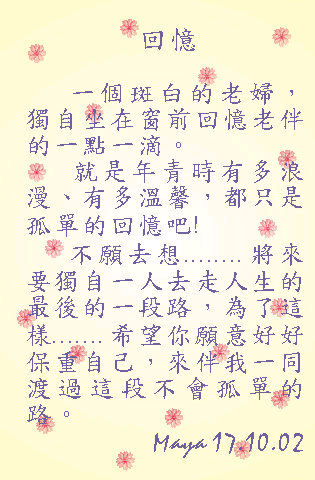 回憶
一個斑白的老婦，
獨自坐在窗前回憶老伴
的一點一滴。
就是年青時有多浪
漫、有多溫馨，都只是
孤單的回憶吧!
不願去想........將來
要獨自一人去走人生的
最後的一段路，為了這
樣.......希望你願意好好
保重自己，來伴我一同
渡過這段不會孤單的
路。
Maya 17.10.02